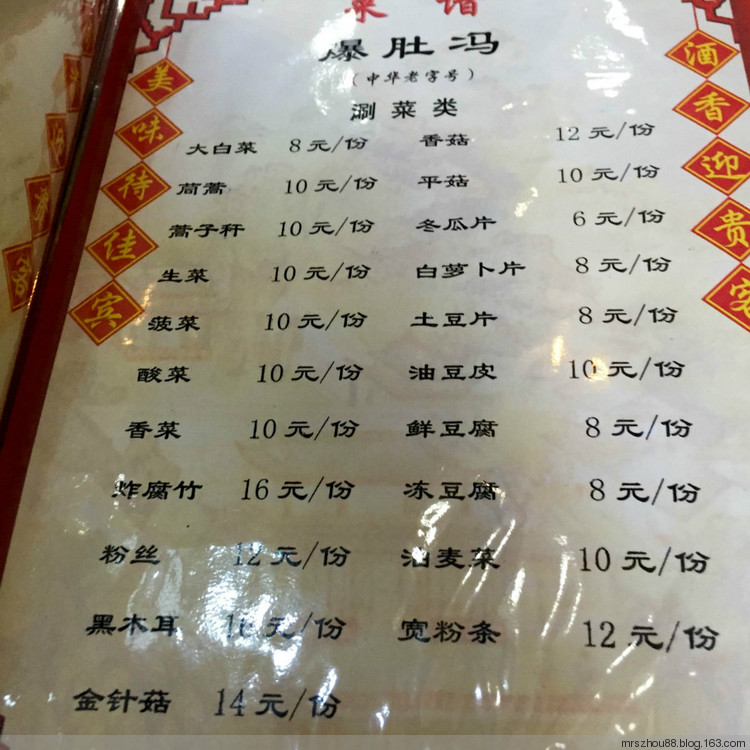 菜 谱
爆肚冯
(中华老字号)
涮菜类
大白菜 8元/份 香菇 12元/份
茼蒿 10元/份 平菇 10元/份
蒿子秆 10元/份 冬瓜片 6元/份
生菜 10元/份 白萝卜片 8元/份
菠菜 10元/份 土豆片 8元/份
酸菜 10元/份 油豆皮 10元/份
香菜 10元/份 鲜豆腐 8元/份
炸腐竹 16元/份 冻豆腐 8元/份
粉丝 12元/份 油麦菜 10元/份
黑木耳 16元/份 宽粉条 12元/份
金针菇 14元/份
美味待佳宾
酒香迎贵客
mrszhou88.blog.163.com